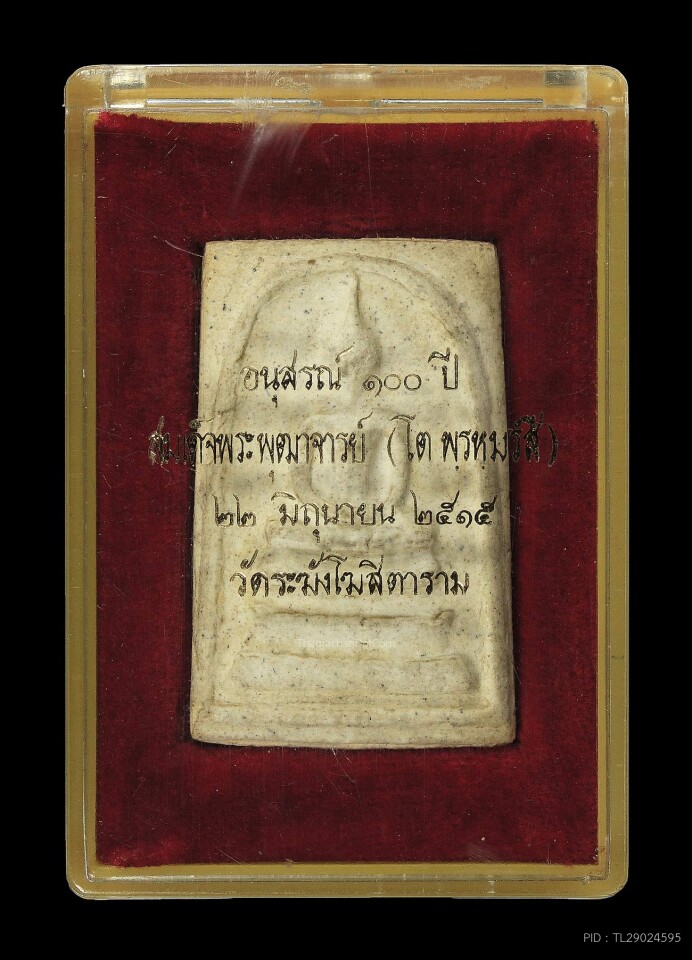 อนุสรณ์ ๑๐๐ ปี
สมเด็จพระพุฒาจารย์ (โต พฺรหฺมรํสี)
๒๒ มิถุนายน ๒๕๑๕
วัดระฆังโฆสิตาราม
PID : TL29024595